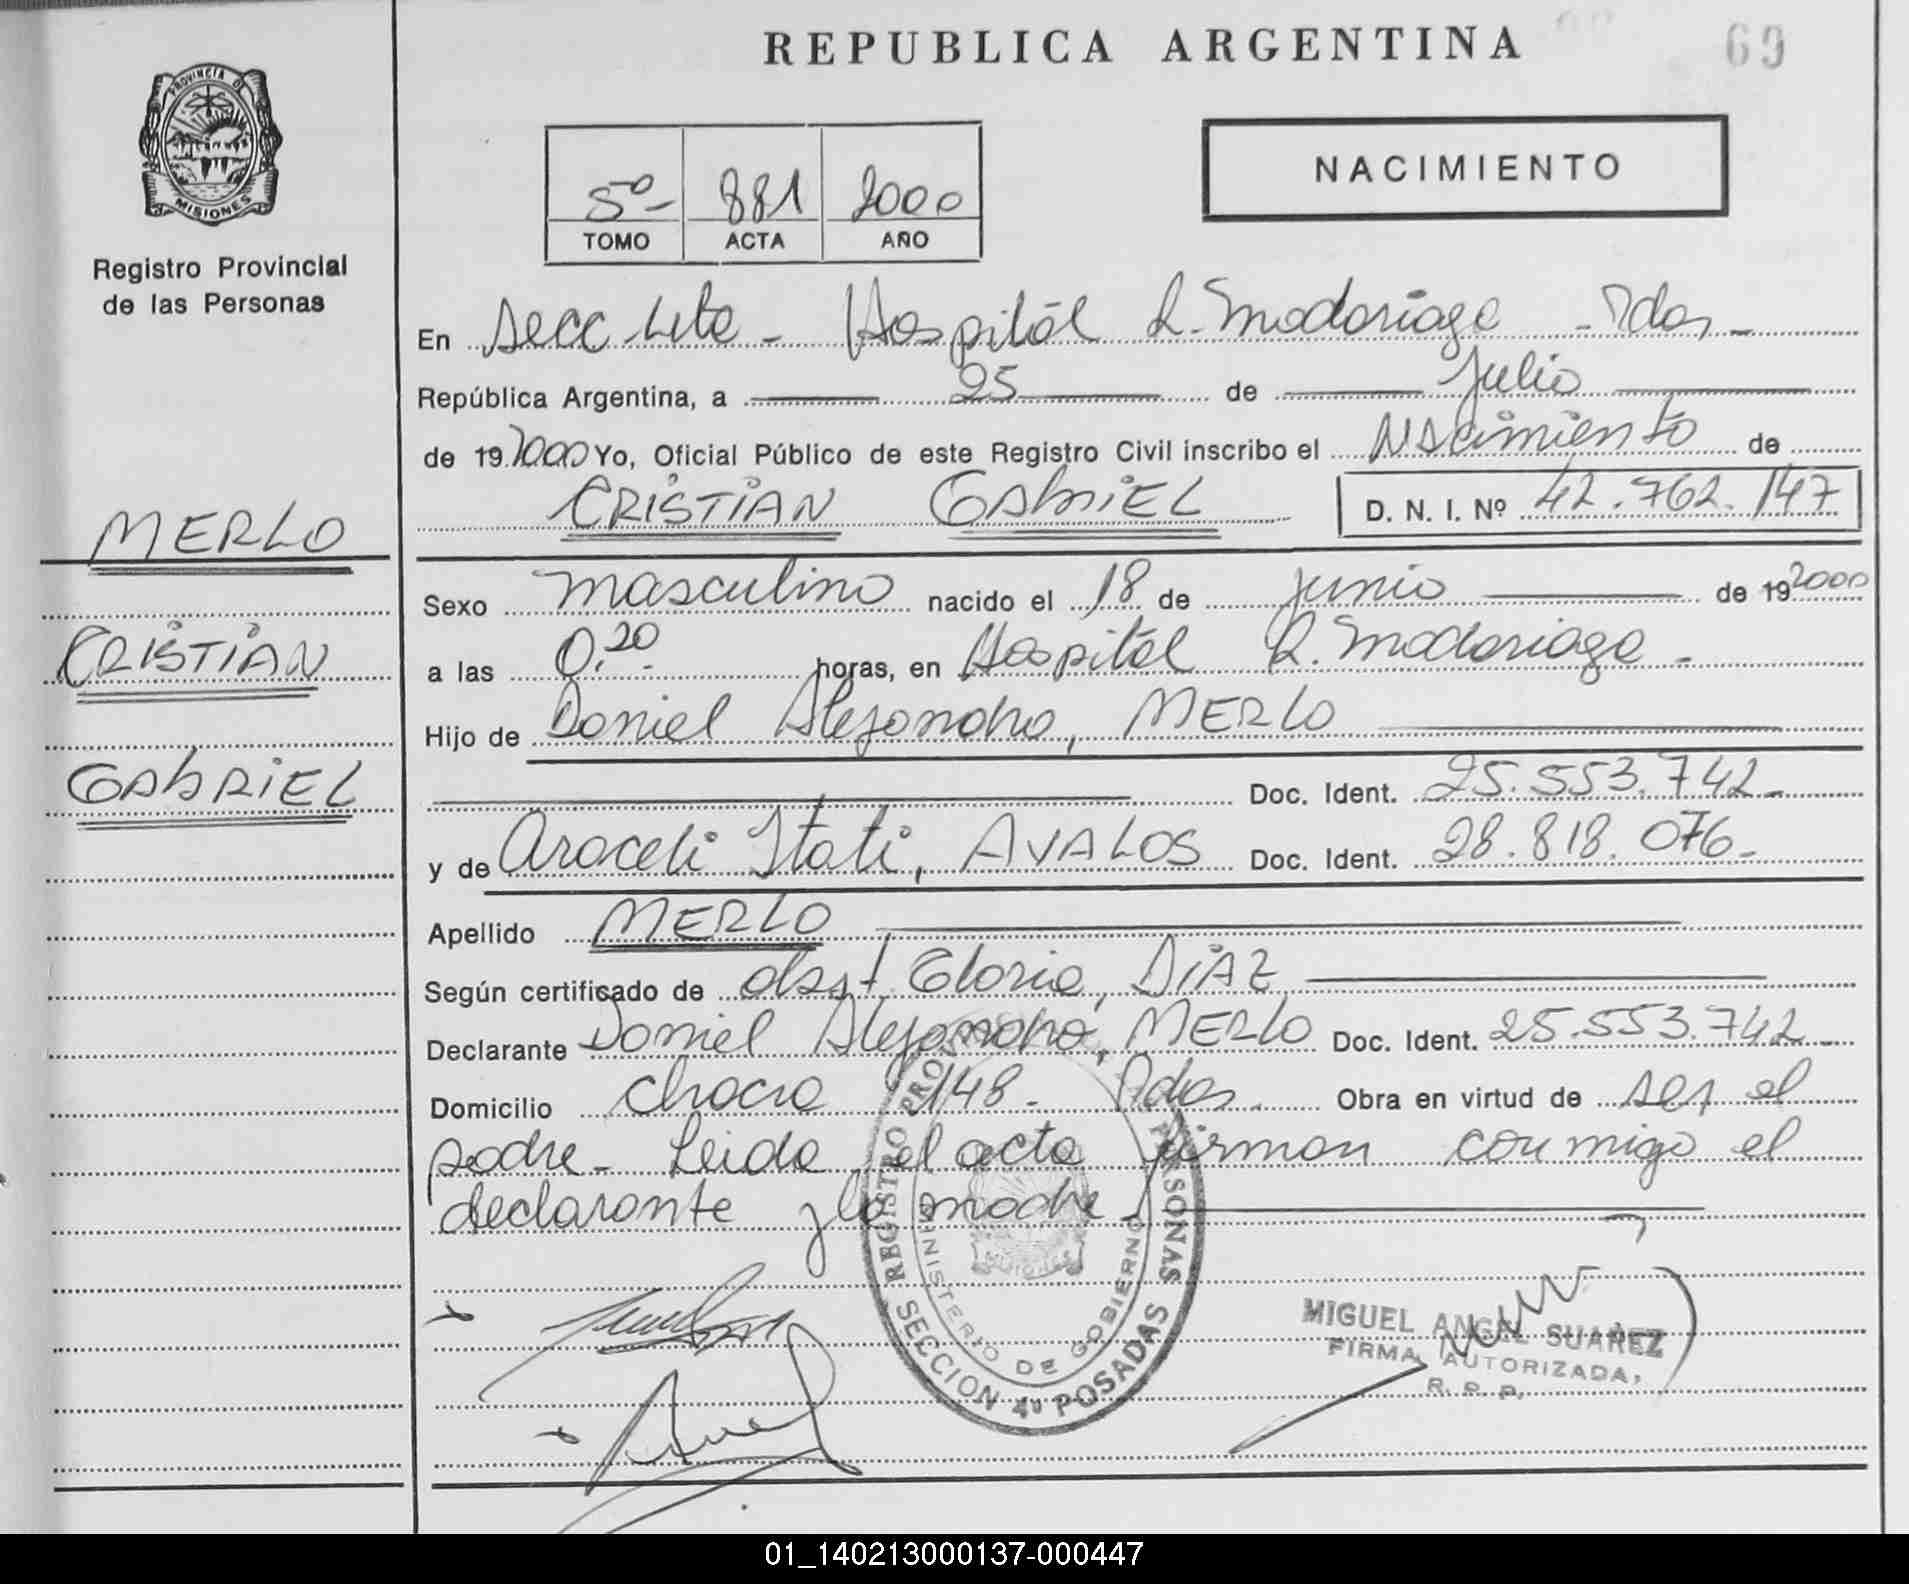 REPUBLICA ARGENTINA
69
PROVINCIA DE
MISIONES
Registro Provincial
de las Personas
5º- 881 2000
TOMO ACTA AÑO
NACIMIENTO
En Secc 4ta - Hospital R. Madariaga - Pdas -
República Argentina, a 25 de Julio
de 19 2000 Yo, Oficial Público de este Registro Civil inscribo el Nacimiento de
CRISTIAN GABRIEL D. N. I. Nº 42.762.147
MERLO
CRISTIAN
GABRIEL
Sexo masculino nacido el 18 de junio de 19 2000
a las 0,20 horas, en Hospital R. Madariaga -
Hijo de Daniel Alejandro, MERLO
Doc. Ident. 25.553.742-
y de Araceli Itati, AVALOS Doc. Ident. 28.818.076-
Apellido MERLO
Según certificado de obst. Gloria, DIAZ
Declarante Daniel Alejandro, MERLO Doc. Ident. 25.553.742-
Domicilio chacra 148- Pdas. Obra en virtud de ser el
padre- Leida el acta firman conmigo el
declarante y la madre
REGISTRO PERSONAS
MINISTERIO DE GOBIERNO
SECCION 4ª POSADAS
MIGUEL ANGEL SUAREZ
FIRMA AUTORIZADA,
R. P. P.
01_140213000137-000447